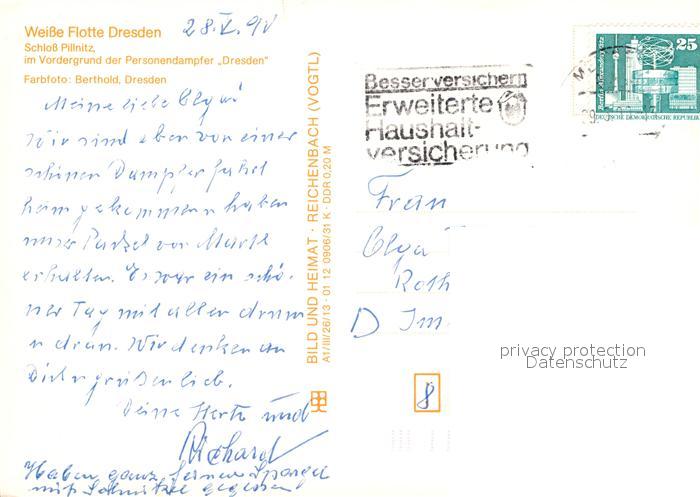 Weiße Flotte Dresden
Schloß Pillnitz,
im Vordergrund der Personendampfer „Dresden"
Farbfoto: Berthold, Dresden
28.V.90
Meine liebe Olga!
Wir sind eben von einer
schönen Dampferfahrt
heim gekommen u haben
unser Packel von Markt
erhalten. Es war ein schö-
ner Tag mit allen drum
u dran. Wir denken an
Dich u grüßen lieb.
Deine Herta und
Richard
Haben ganz fernen Spargel
mit Schnitzel gegessen
BILD UND HEIMAT · REICHENBACH (VOGTL)
A1/III/26/13 · 01 12 0906/31 K · DDR 0,20 M
Besser versichern
Erweiterte
Haushalt-
versicherung
25
DEUTSCHE DEMOKRATISCHE REPUBLIK
Frau
Olga
Roth
D Im.
privacy protection
Datenschutz
8